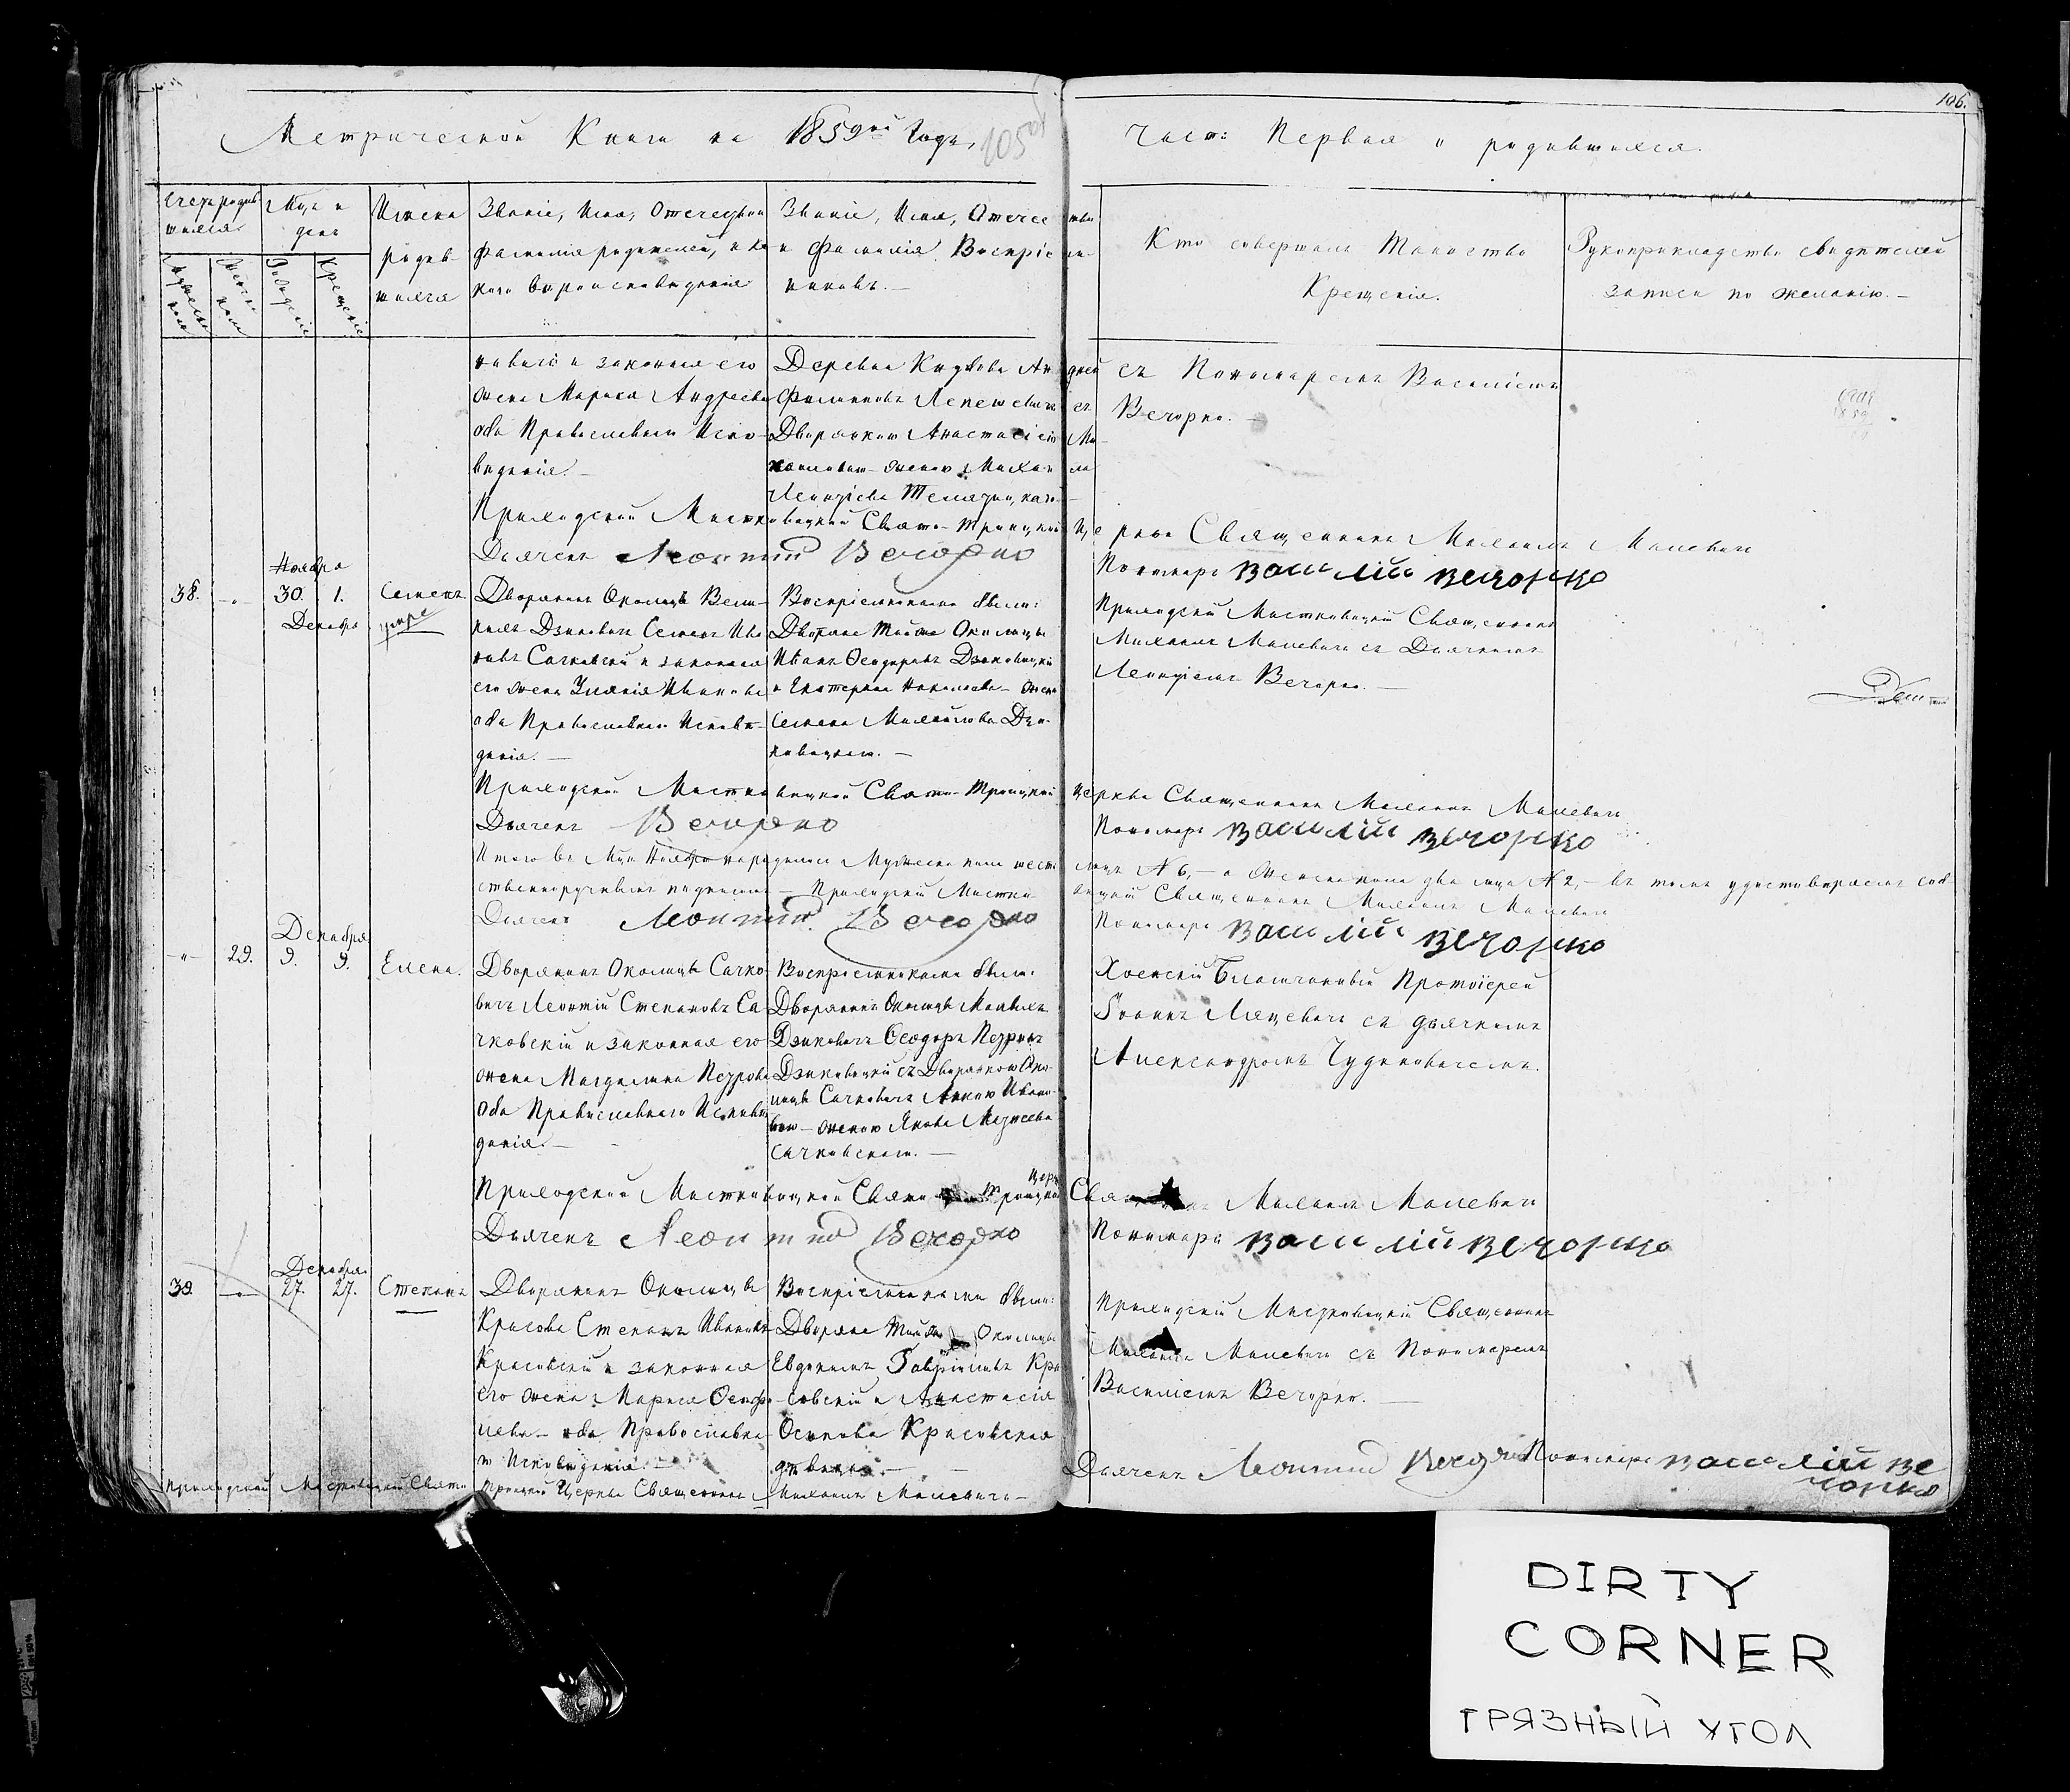 Метрической Книги на 1859й Годъ
105 об
Част: Первая о родившихся.
106.
Имена
родив-
шихся
Званіе, Имя, Отечество
фамилія родителей, и ка-
кого вѣроисповѣданія
Званіе, Имя, Отечество
и фамилія Воспріем-
никовъ.—
Кто совершалъ Таинство
Крещенія.
Рукоприкладство свидѣтелей
записи по желанію.—
новаго и законная его
жена Марья Андреева
оба Православнаго Испо-
вѣданія.—
Дворянкою Анастасіею Ми-
хайловою женою Михаила
съ Пономаремъ Василіемъ
Вечорко.—
Приходскій Мистковицкой Свято-Троицкой Церкви Священникъ Михаилъ Малевичъ
Дьячекъ Леонтій Вечорко
Пономарь Василій Вечорко
Ноября
38. 30. 1. Семенъ
Декабря
Дворянинъ Околицы Вели-
кихъ Дзиковичъ Семенъ Ива-
новъ Сачковскій и законная
его жена Улянія Иванова
оба Православнаго Исповѣ-
данія.—
Воспріемниками были:
Дворяне тойже Околицы
Иванъ Феодоровъ Дзиковицкій
и Екатерина Николаева жена
Семена Михайлова Дзи-
ковицкаго.—
Приходскій Мистковицкій Священникъ
Михаилъ Малевичъ съ Дьячкомъ
Леонтіемъ Вечорко.—
Приходскій Мистковицкой Свято-Троицкой Церкви Священникъ Михаилъ Малевичъ
Дьячекъ Вечорко
Пономарь Василій Вечорко
Итого въ Мцѣ Ноябрѣ народилось Мужеска пола шесть лицъ № 6,— а Женска пола два лица № 2,— въ томъ удостовѣряемъ соб-
ственноручнымъ подписомъ — Приходскій Мистковицкій Священникъ Михаилъ Малевичъ
Дьячекъ Леонтій Вечорко
Пономарь Василій Вечорко
Декабря
29. 9. 9. Елена.
Дворянинъ Околицы Сачко-
вичъ Леонтій Степановъ Са-
чковскій и законная его
жена Магдалина Петрова
Оба Православнаго Исповѣ-
данія.—
Воспріемниками были:
Дворянинъ Околицы Малыхъ
Дзиковичъ Феодоръ Петровъ
Дзиковицкій съ Дворянкою Око-
лицы Сачковичъ Анною Ивано-
вою — женою Якова Матѳеева
Сачковскаго.—
Хоенскій Благочинный Протоіерей
Іоаннъ Лицевичъ съ дьячкомъ
Александромъ Чудиновичемъ.
Приходскій Мистковицкой Свято Троицкой Церк Священникъ Михаилъ Малевичъ
Дьячекъ Леонтій Вечорко
Пономарь Василій Вечорко
Декабря
39. 27. 27. Степанъ
Дворянинъ Околицы
Красова Степанъ Ивановъ
Красовскій и законная
его жена Марья
оба Православна-
го Исповѣданія.—
Воспріемниками были:
Дворяне Той же Околицы
Евдокимъ Гавріиловъ Кра-
совскій и Анастасія
Осипова Красовская
дѣвица.—
Приходскій Мистковицкій Священникъ
Михаилъ Малевичъ съ Пономаремъ
Василіемъ Вечорко.—
Приходскій Мистковицкій Свято Троицкой Церкви Священникъ Михаилъ Малевичъ—
Дьячекъ Леонтій Вечорко Пономарь Василій Ве
чорко
DIRTY
CORNER
ГРЯЗНЫЙ УГОЛ